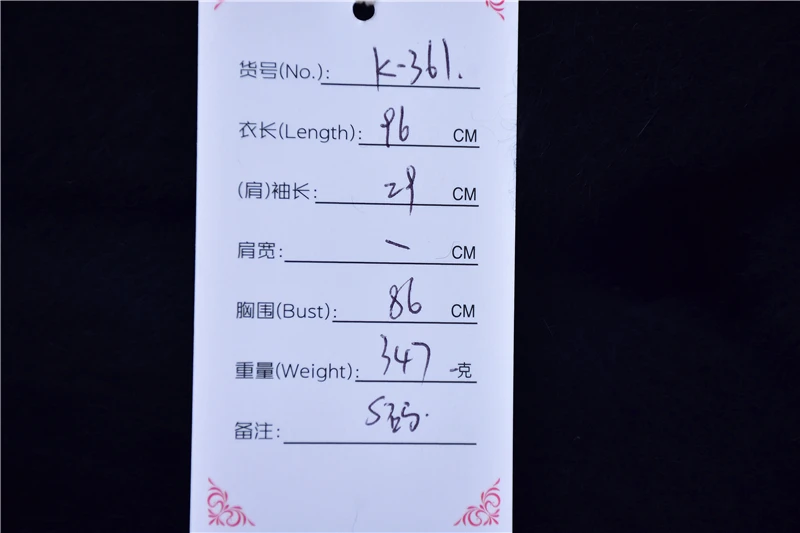 货号(No.): K-361.
衣长(Length): 96 CM
(肩)袖长: 29 CM
肩宽: — CM
胸围(Bust): 86 CM
重量(Weight): 347 克
备注: S码.